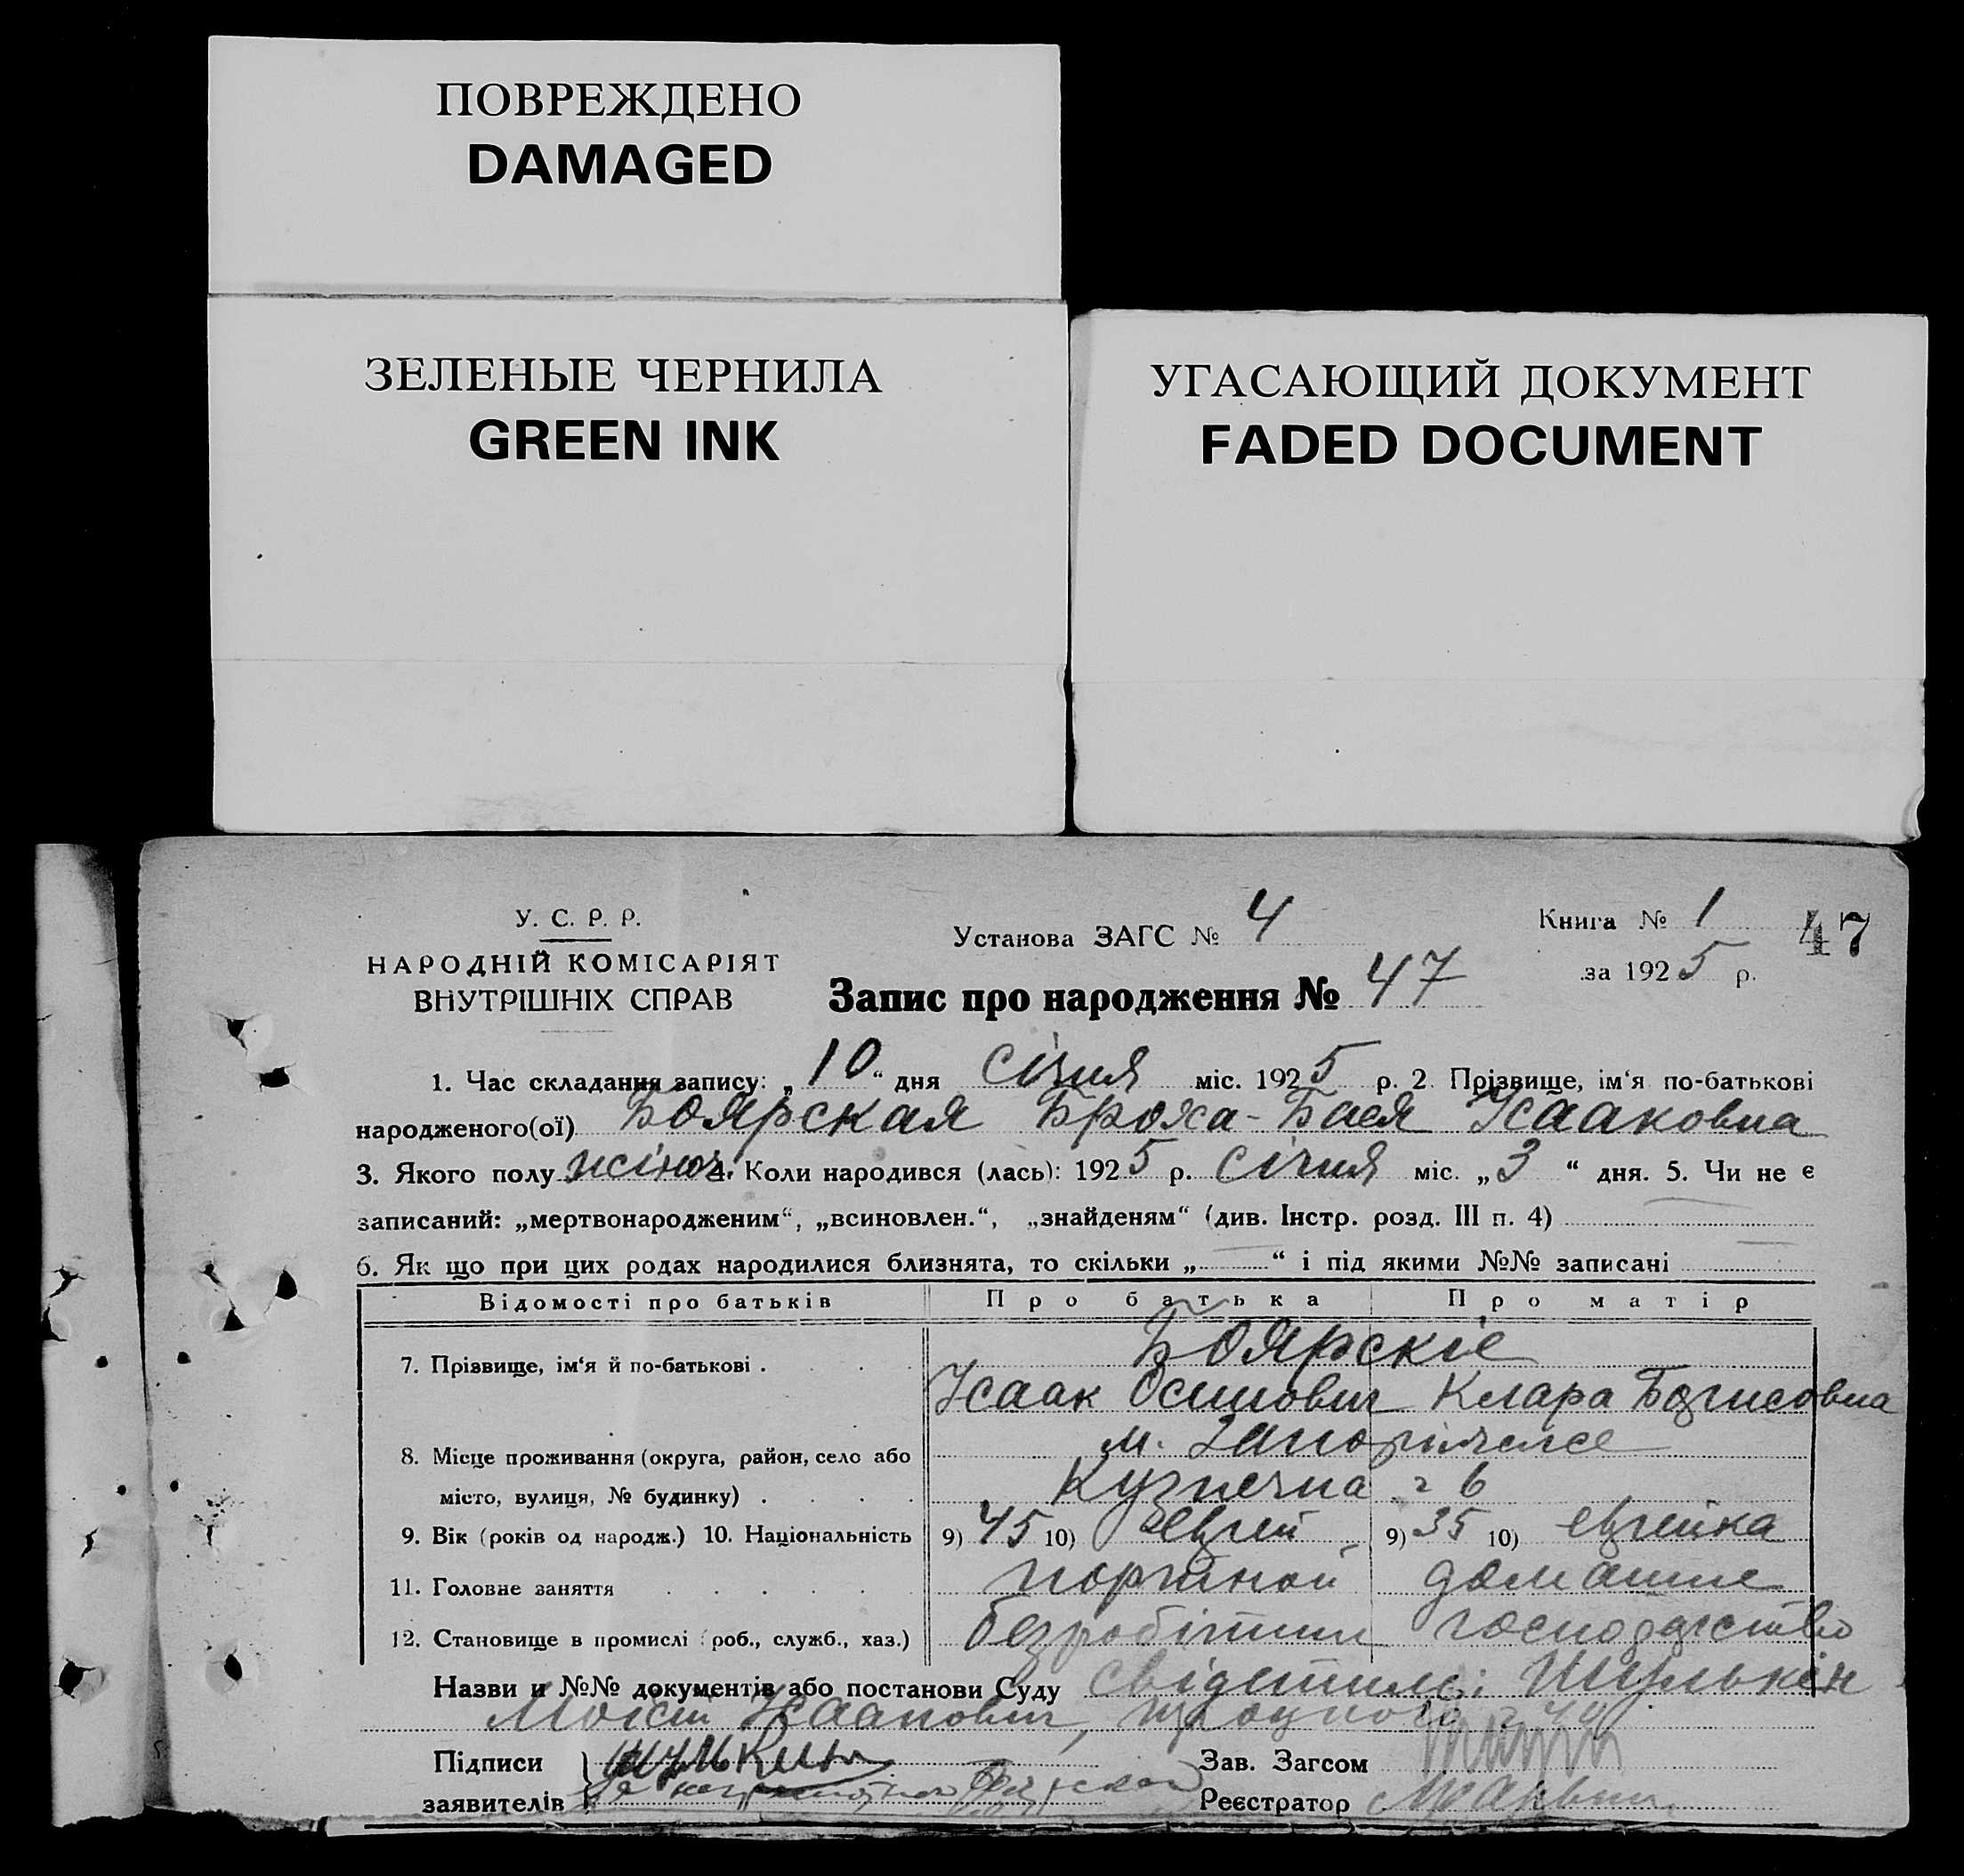 ПОВРЕЖДЕНО
DAMAGED
ЗЕЛЕНЫЕ ЧЕРНИЛА
GREEN INK
УГАСАЮЩИЙ ДОКУМЕНТ
FADED DOCUMENT
У. С. Р. Р.
НАРОДНІЙ КОМІСАРІЯТ
ВНУТРІШНІХ СПРАВ
Установа ЗАГС № 4
Книга № 1
47
за 1925 р.
Запис про народження № 47
1. Час складання запису: „10“ дня січня міс. 1925 р. 2. Прізвище, ім‘я по-батькові
народженого(ої) Боярская Броха-Бася Исааковна
3. Якого полу жіноч. 4. Коли народився (лась): 1925 р. січня міс. „3“ дня. 5. Чи не є
записаний: „мертвонародженим“, „всиновлен.“, „знайденям“ (див. Інстр. розд. III п. 4)
6. Як що при цих родах народилися близнята, то скільки „ “ і під якими №№ записані
Відомості про батьків Про батька Про матір
7. Прізвище, ім‘я й по-батькові . Боярскіе
Исаак Осипович Клара Борисовна
8. Місце проживання (округа, район, село або м. Запоріжжє
місто, вулиця, № будинку) . Кузнечна 6
9. Вік (років од народж.) 10. Національність 9) 45 10) еврей 9) 35 10) еврейка
11. Головне заняття портной домашнє
12. Становище в промислі (роб., служб., хаз.) безробітний господарство
Назви и №№ документів або постанови Суду свідетилі: Шулькін
Моісій Исаакович,
Підписи Шулькин
заявителів
Зав. Загсом
Реєстратор